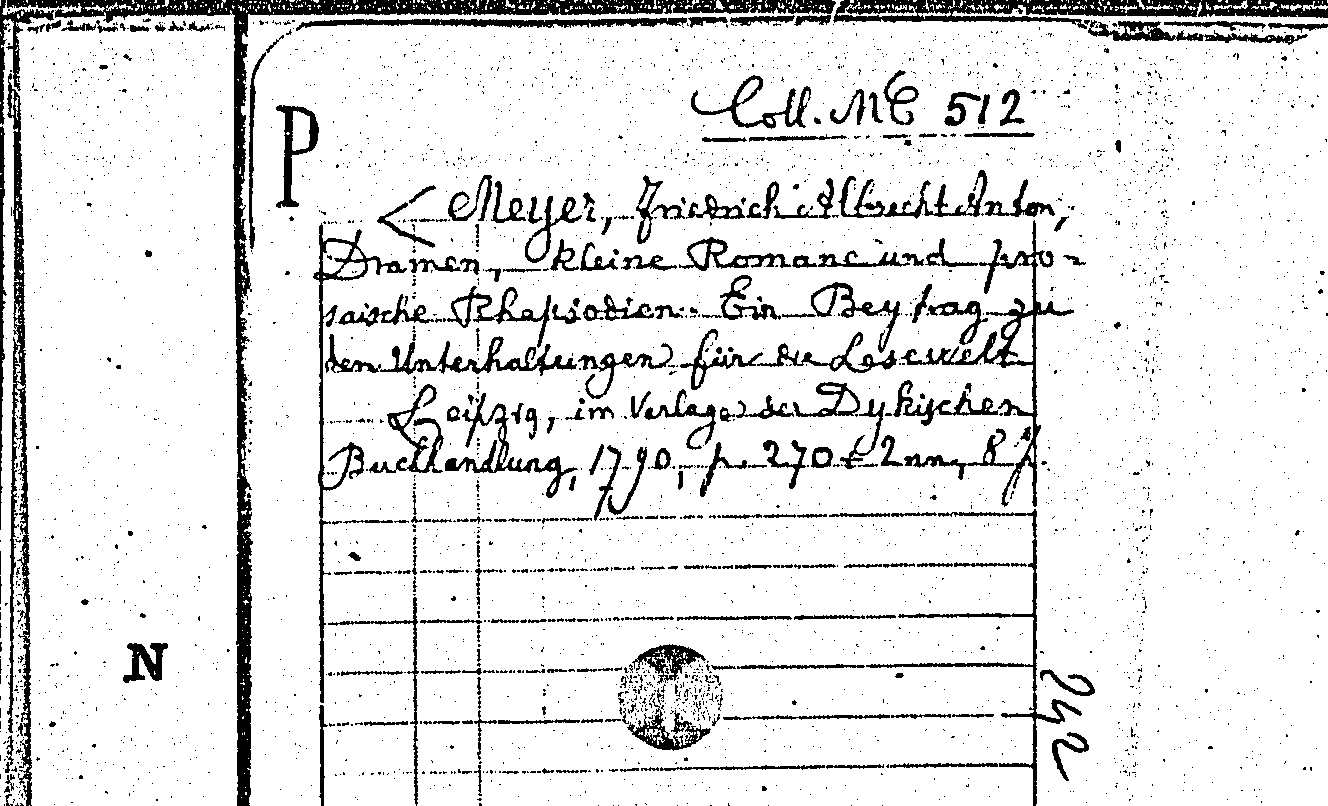 P
Coll. MC 512
< Meyer, Friedrich Albrecht Anton,
Dramen, kleine Romane und pro-
saische Rhapsodien. Ein Beytrag zu
den Unterhaltungen für die Lesewelt
Leipzig, im Verlage der Dykischen
Buchhandlung, 1790, p. 270 + 2 nn,
N
242